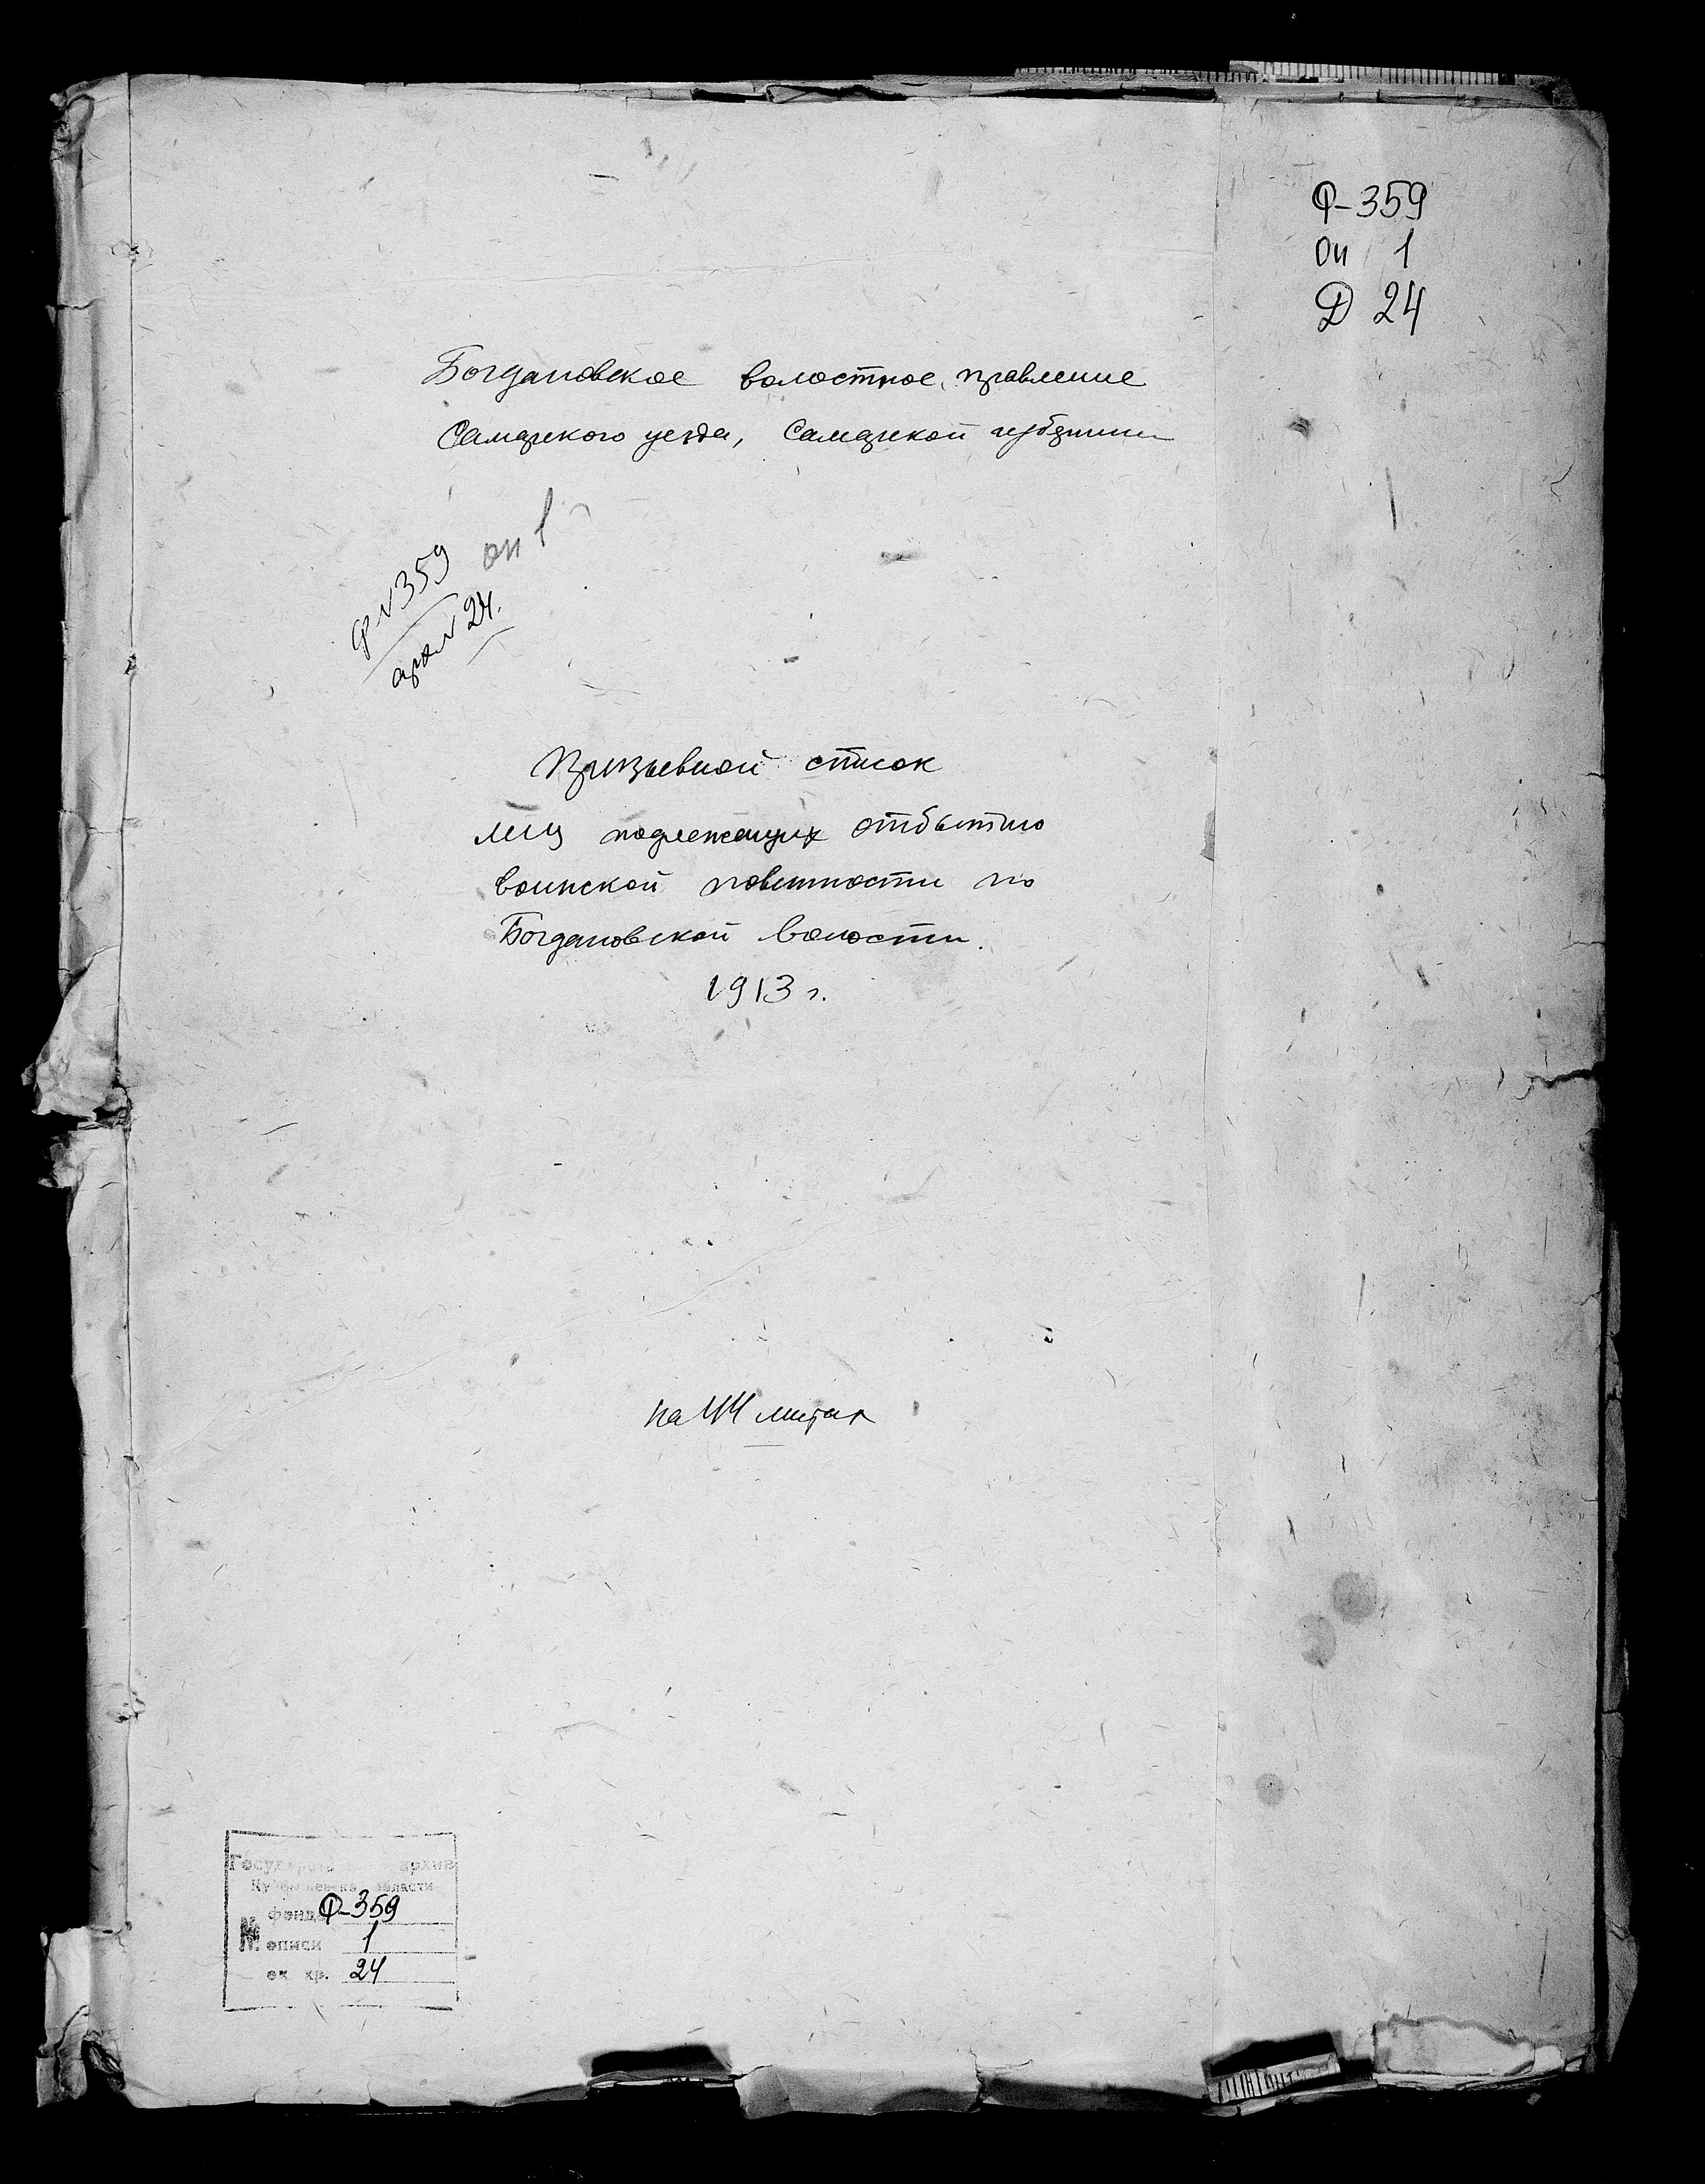 Ф-359
Оп 1
Д 24
Богдановское волостное правление
Самарского уезда, Самарской губернии
ф №359 оп 1
арх № 24.
Призывной список
лиц подлежащих отбытию
воинской повинности по
Богдановской волости.
1913 г.
на 44 листах
Государственный архив
Куйбышевской области
№ фонда Ф-359
№ описи 1
ед. хр. 24